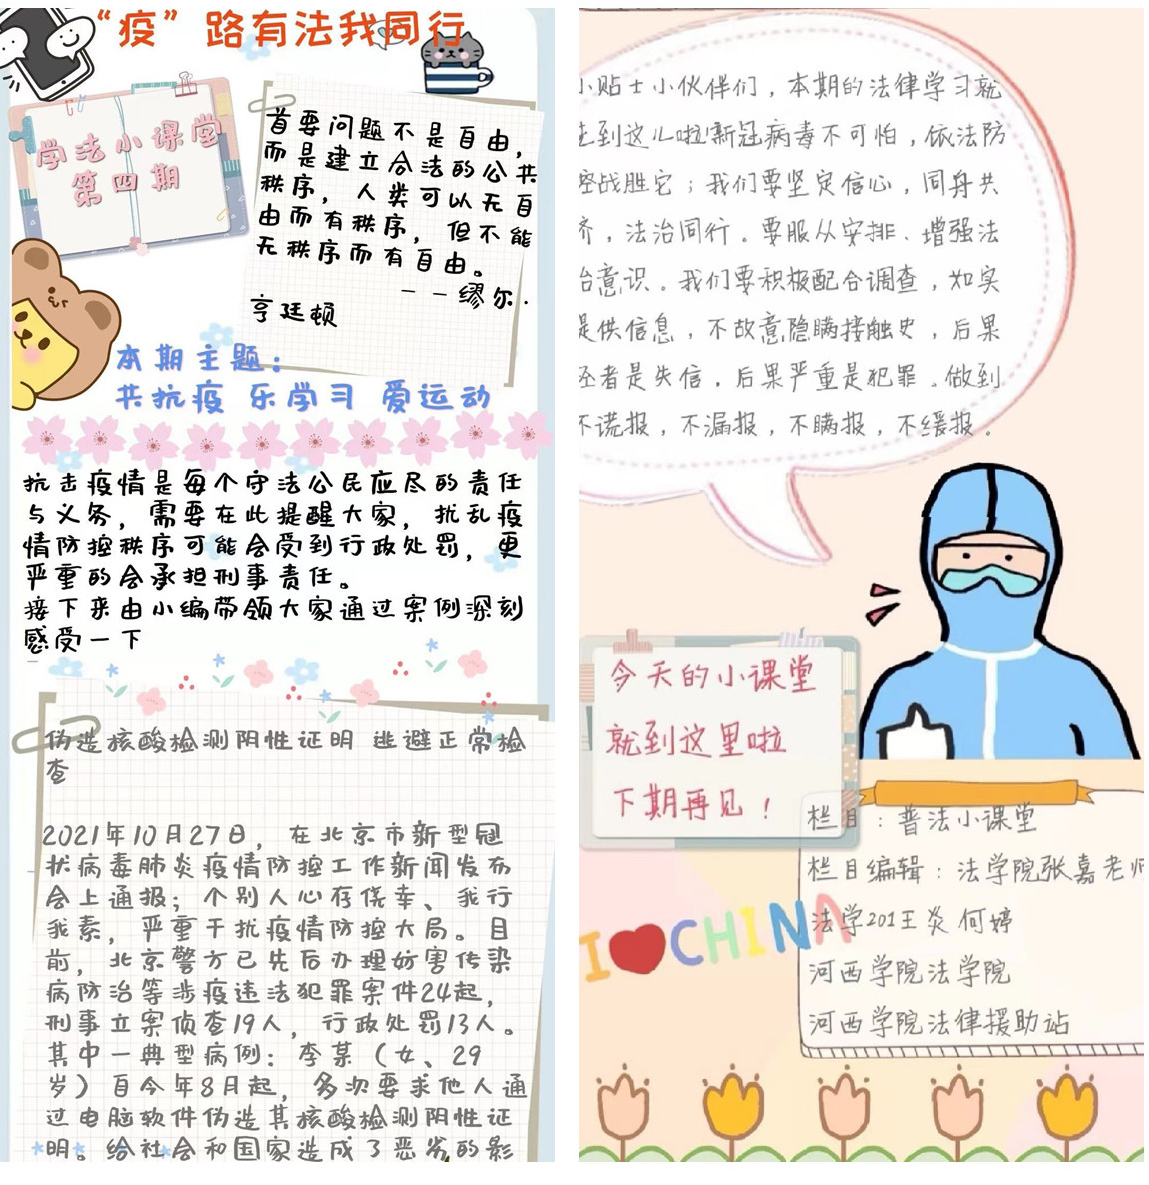 “疫”路有法我同行
学法小课堂
第四期
首要问题不是自由，
而是建立合法的公共
秩序，人类可以无自
由而有秩序，但不能
无秩序而有自由。
——缪尔·
亨廷顿
本期主题：
共抗疫 乐学习 爱运动
抗击疫情是每个守法公民应尽的责任
与义务，需要在此提醒大家，扰乱疫
情防控秩序可能会受到行政处罚，更
严重的会承担刑事责任。
接下来由小编带领大家通过案例深刻
感受一下
伪造核酸检测阴性证明 逃避正常检
查
2021年10月27日，在北京市新型冠
状病毒肺炎疫情防控工作新闻发布
会上通报；个别人心存侥幸、我行
我素，严重干扰疫情防控大局。目
前，北京警方已先后办理妨害传染
病防治等涉疫违法犯罪案件24起，
刑事立案侦查19人，行政处罚13人。
其中一典型病例：李某（女、29
岁）自今年8月起，多次要求他人通
过电脑软件伪造其核酸检测阴性证
明。给社会和国家造成了恶劣的影
小贴士小伙伴们，本期的法律学习就
到这儿啦!新冠病毒不可怕，依法防
控战胜它；我们要坚定信心，同舟共
济，法治同行。要服从安排、增强法
治意识。我们要积极配合调查，如实
提供信息，不故意隐瞒接触史，后果
轻者是失信，后果严重是犯罪。做到
不谎报，不漏报，不瞒报，不缓报。
今天的小课堂
就到这里啦
下期再见！
栏目：普法小课堂
栏目编辑：法学院张嘉老师
法学201王炎 何婷
I CHINA
河西学院法学院
河西学院法律援助站